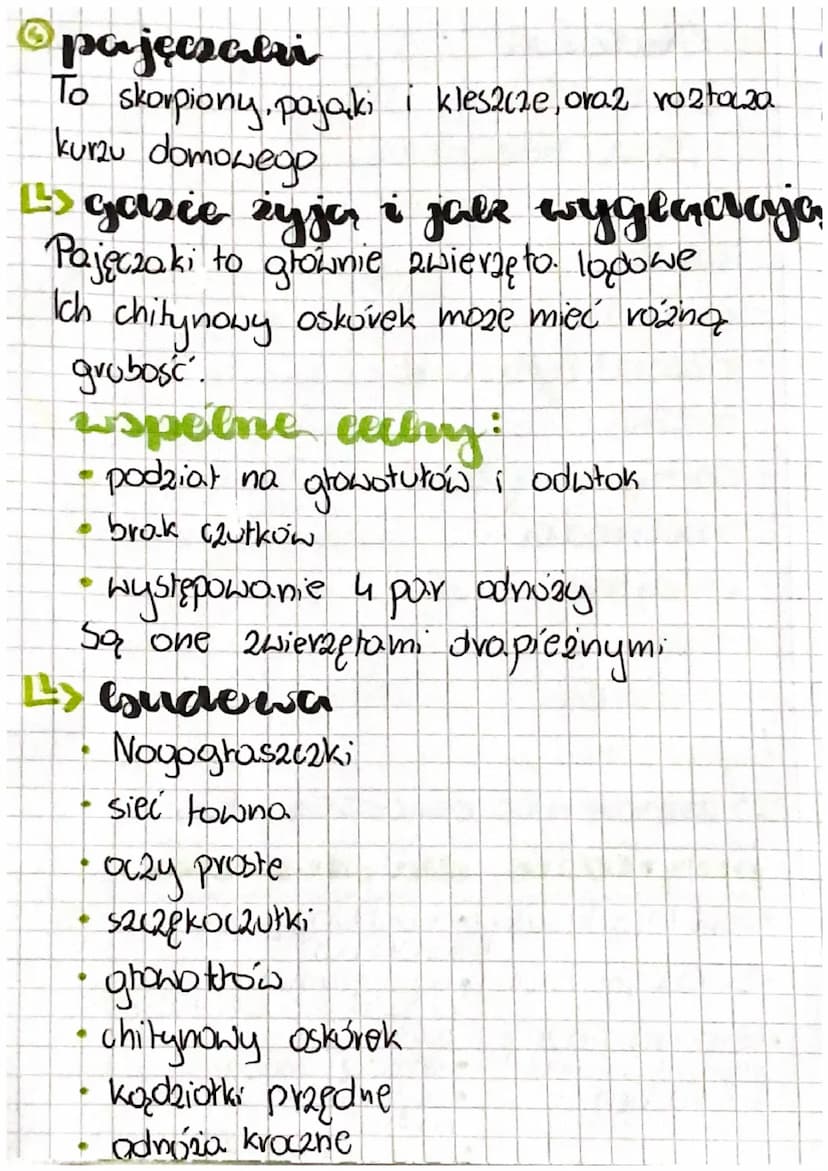 ④ pajęczaki
To skorpiony, pająki i kleszcze, oraz roztocza
kurzu domowego
↳> gdzie żyją i jak wyglądają
Pajęczaki to głównie zwierzęta lądowe
Ich chitynowy oskórek może mieć różną
grubość.
wspólne cechy:
• podział na głowotułów i odwłok
• brak czułków
• występowanie 4 par odnóży
Są one zwierzętami drapieżnymi
↳> budowa
• Nogogłaszczki
• sieć łowna
• oczy proste
• szczękoczułki
• głowotłów
• chitynowy oskórek
• kądziołki przędne
• odnóża kroczne